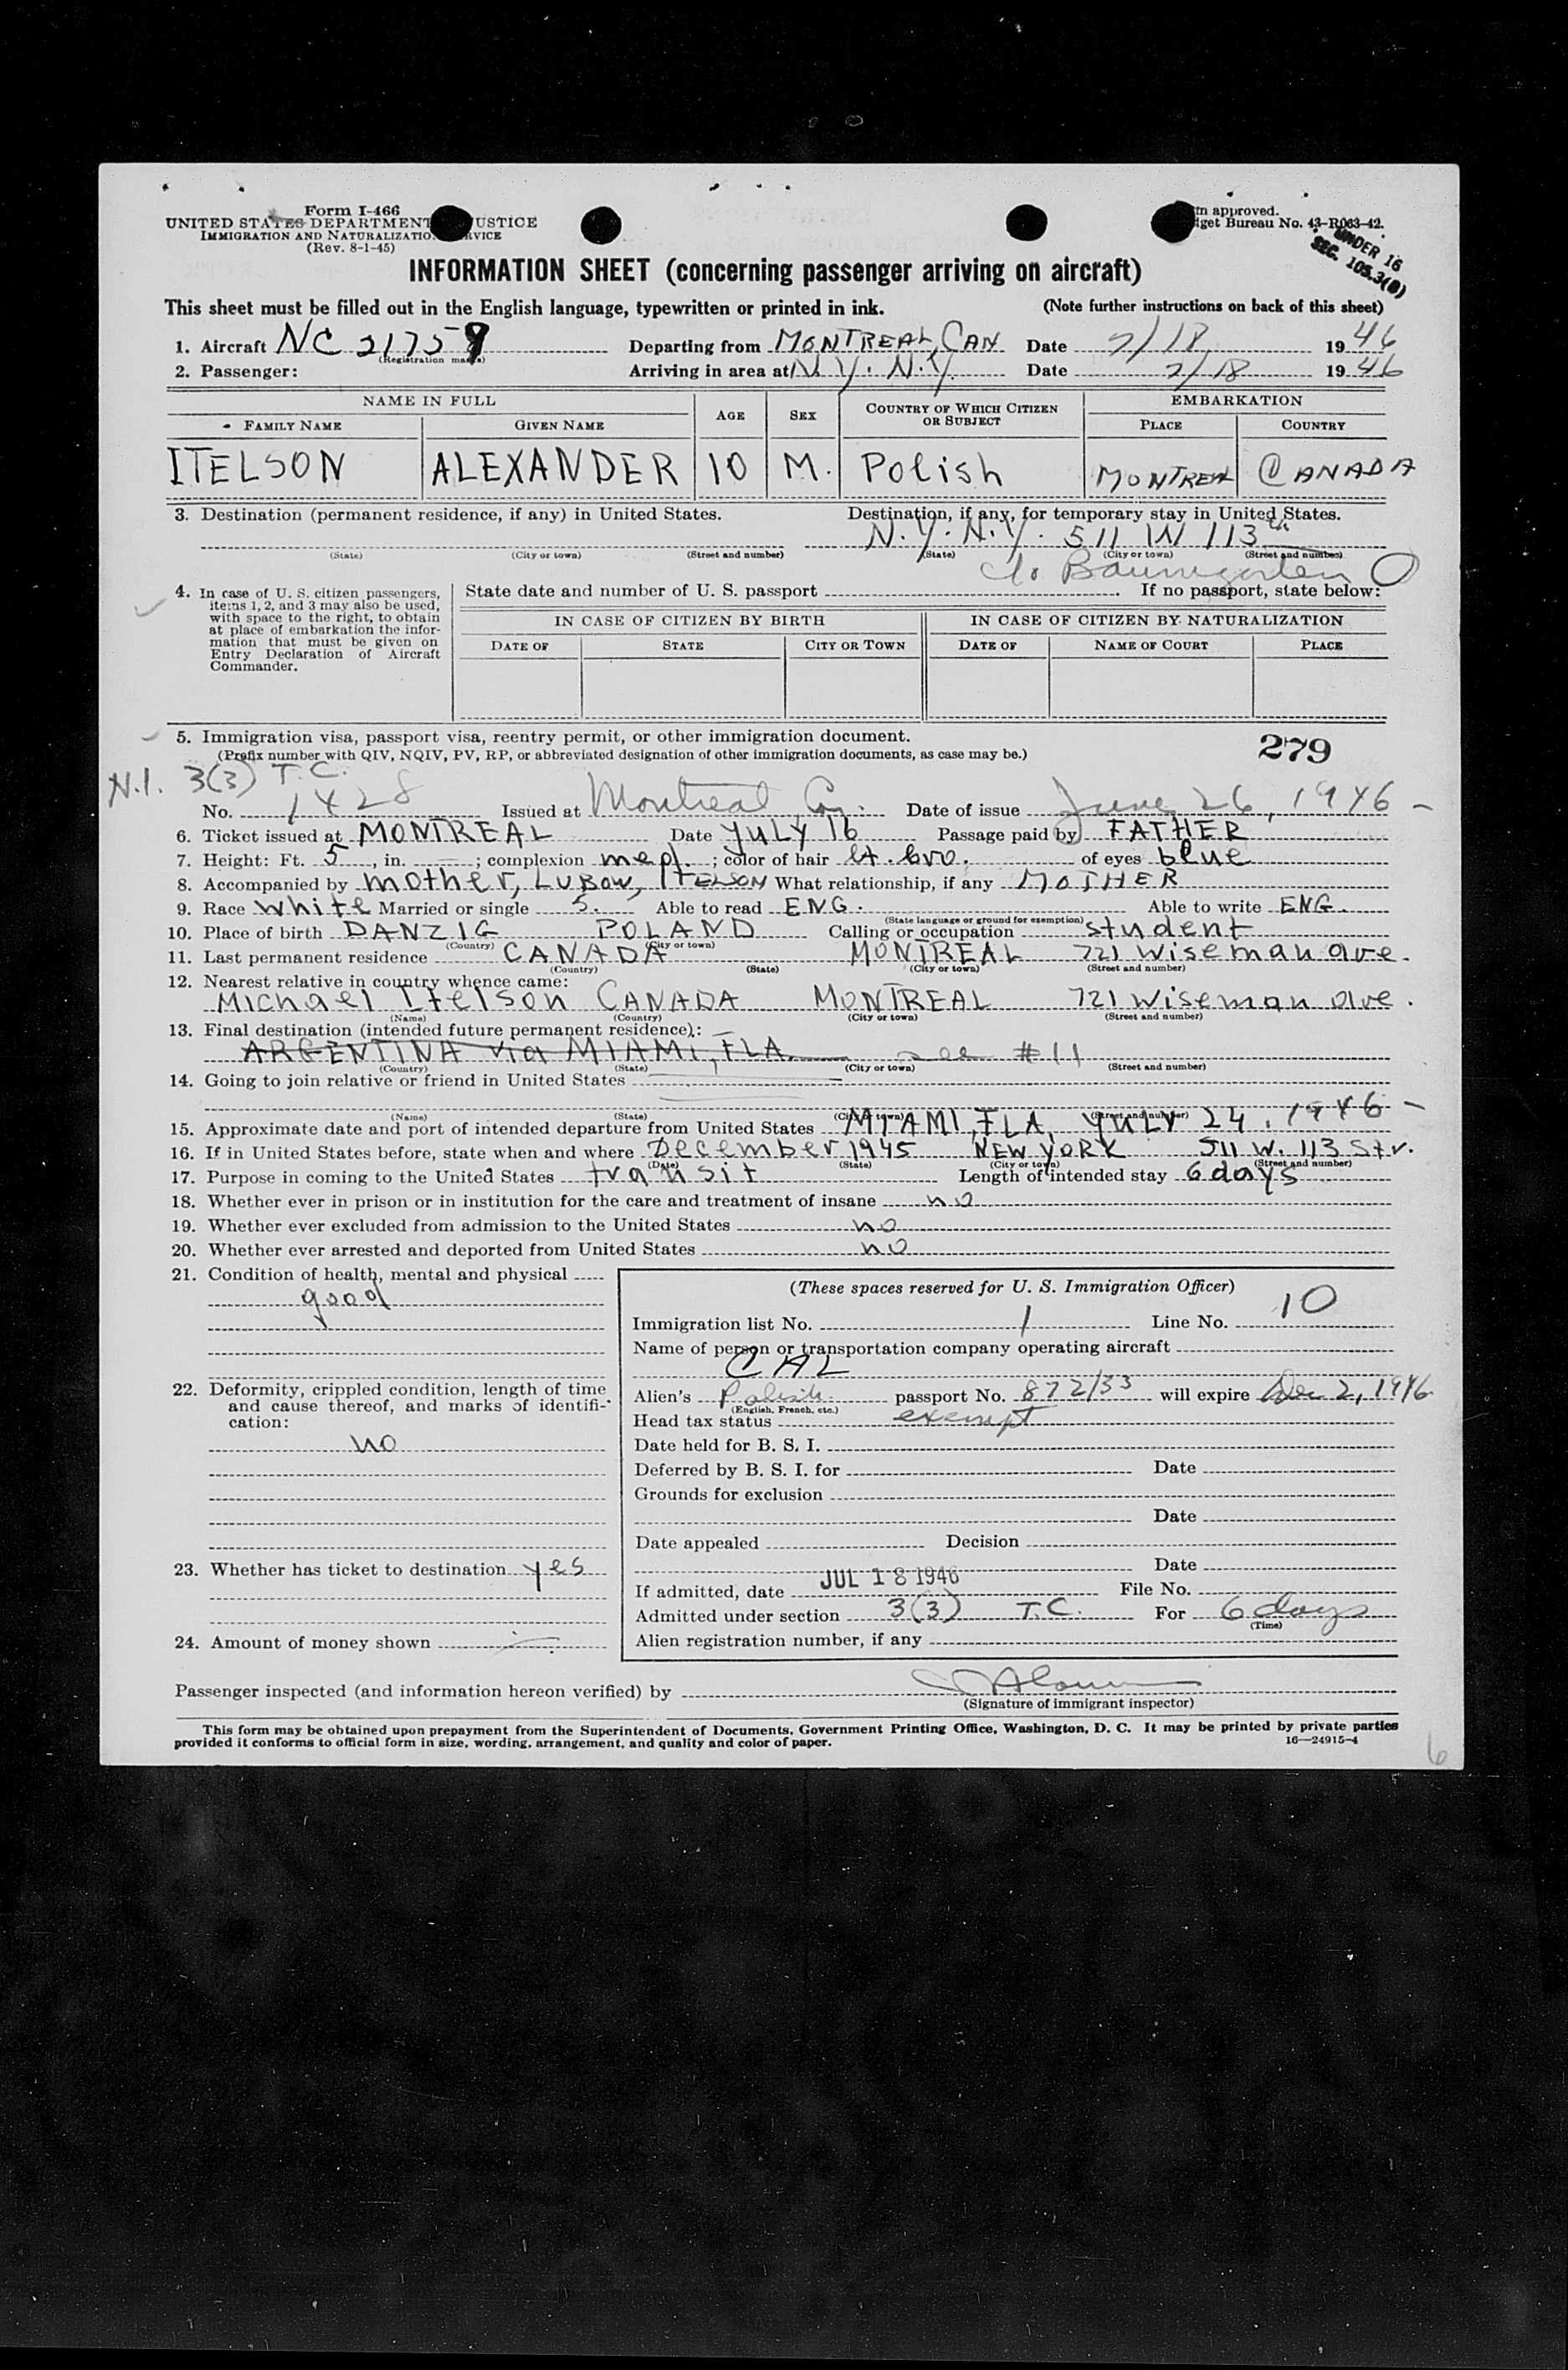 Form I-466
UNITED STATES DEPARTMENT JUSTICE
IMMIGRATION AND NATURALIZATIO RVICE
(Rev. 8-1-45)
approved.
get Bureau No. 43-R063-42.
UNDER 16
SEC. 105.3(B)
INFORMATION SHEET (concerning passenger arriving on aircraft)
This sheet must be filled out in the English language, typewritten or printed in ink. (Note further instructions on back of this sheet)
1. Aircraft NC 21759 Departing from MONTREAL, CAN Date 7/18, 1946
(Registration marks)
2. Passenger: Arriving in area at N.Y. N.Y. Date 7/18 1946
NAME IN FULL AGE SEX COUNTRY OF WHICH CITIZEN OR SUBJECT EMBARKATION
FAMILY NAME GIVEN NAME PLACE COUNTRY
ITELSON ALEXANDER 10 M. Polish MONTREAL CANADA
3. Destination (permanent residence, if any) in United States. Destination, if any, for temporary stay in United States.
N.Y. N.Y. 511 W 113th
(State) (City or town) (Street and number) (State) (City or town) (Street and number)
c/o Baumgarten
4. In case of U. S. citizen passengers, items 1, 2, and 3 may also be used, with space to the right, to obtain at place of embarkation the information that must be given on Entry Declaration of Aircraft Commander.
State date and number of U. S. passport If no passport, state below:
IN CASE OF CITIZEN BY BIRTH IN CASE OF CITIZEN BY NATURALIZATION
DATE OF STATE CITY OR TOWN DATE OF NAME OF COURT PLACE
5. Immigration visa, passport visa, reentry permit, or other immigration document.
(Prefix number with QIV, NQIV, PV, RP, or abbreviated designation of other immigration documents, as case may be.)
279
N.I. 3(3) T.C.
No. 1428 Issued at Montreal, Can. Date of issue June 26, 1946
6. Ticket issued at MONTREAL Date JULY 16 Passage paid by FATHER
7. Height: Ft. 5, in. —; complexion med.; color of hair lt. bro. of eyes blue
8. Accompanied by mother, LUBOW, ITELSON What relationship, if any MOTHER
9. Race White Married or single S. Able to read ENG. Able to write ENG.
(State language or ground for exemption)
10. Place of birth DANZIG POLAND Calling or occupation student
(Country) (City or town)
11. Last permanent residence CANADA MONTREAL 721 Wiseman ave.
(Country) (State) (City or town) (Street and number)
12. Nearest relative in country whence came:
Michael Itelson CANADA MONTREAL 721 Wiseman ave.
(Name) (Country) (City or town) (Street and number)
13. Final destination (intended future permanent residence):
ARGENTINA via MIAMI, FLA. see #11
(Country) (State) (City or town) (Street and number)
14. Going to join relative or friend in United States
(Name) (State) (City or town) (Street and number)
15. Approximate date and port of intended departure from United States MIAMI, FLA, JULY 24, 1946
16. If in United States before, state when and where December 1945 NEW YORK 511 W. 113 Str.
(Date) (State) (City or town) (Street and number)
17. Purpose in coming to the United States transit Length of intended stay 6 days
18. Whether ever in prison or in institution for the care and treatment of insane no
19. Whether ever excluded from admission to the United States no
20. Whether ever arrested and deported from United States no
21. Condition of health, mental and physical
good
22. Deformity, crippled condition, length of time and cause thereof, and marks of identification:
no
23. Whether has ticket to destination yes
24. Amount of money shown —
(These spaces reserved for U. S. Immigration Officer)
Immigration list No. 1 Line No. 10
Name of person or transportation company operating aircraft
CAL
Alien's Polish passport No. 872/33 will expire Dec 2, 1946
(English, French, etc.)
Head tax status exempt
Date held for B. S. I.
Deferred by B. S. I. for Date
Grounds for exclusion
Date
Date appealed Decision
Date
If admitted, date JUL 18 1946 File No.
Admitted under section 3(3) T.C. For 6 days
(Time)
Alien registration number, if any
Passenger inspected (and information hereon verified) by
(Signature of immigrant inspector)
This form may be obtained upon prepayment from the Superintendent of Documents, Government Printing Office, Washington, D. C. It may be printed by private parties
provided it conforms to official form in size, wording, arrangement, and quality and color of paper. 16—24915-4
6